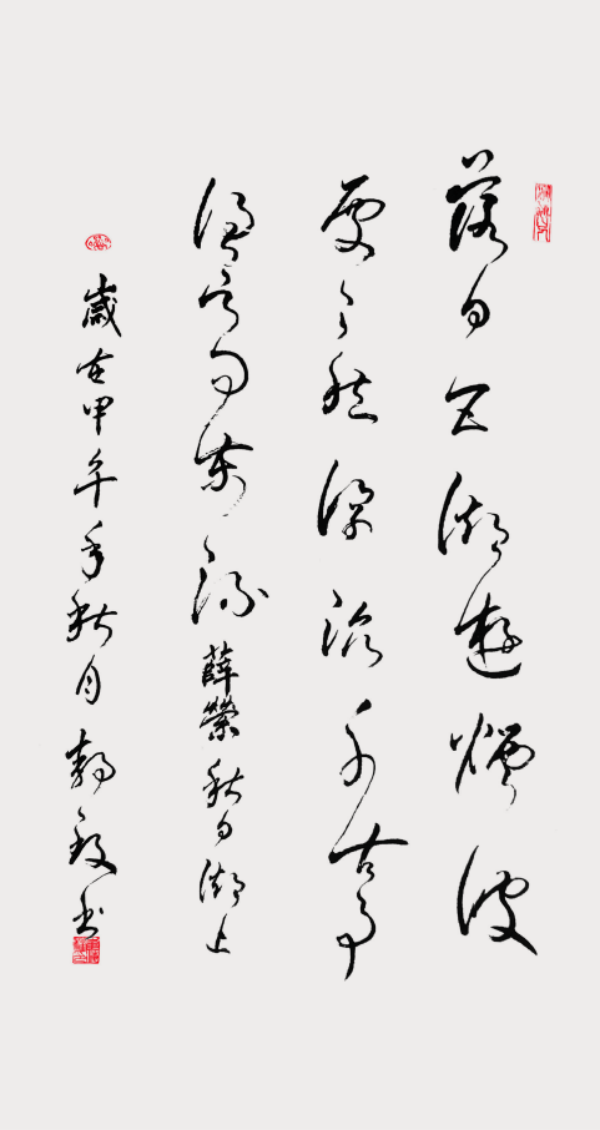 落日五湖遊煙波
處々愁浮沉千古事
誰與問東流 薛榮 秋日湖上
歲在甲午年秋月 书